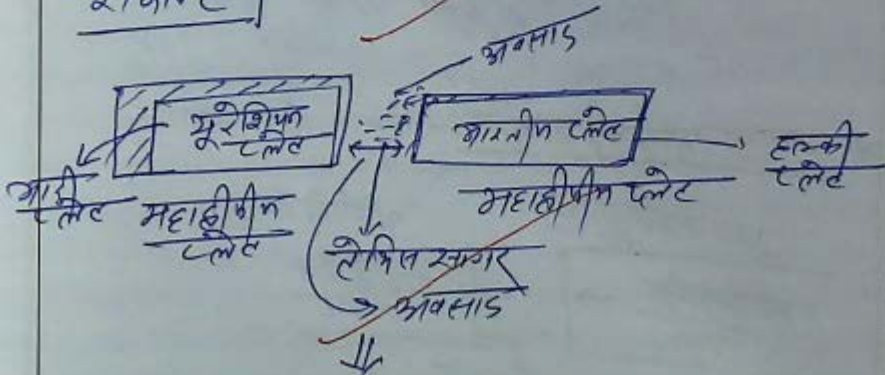 अवसाद
यूरेशियन
प्लेट
भारतीय प्लेट
हल्की
प्लेट
भारी
प्लेट
महाद्वीपीय
प्लेट
महाद्वीपीय प्लेट
टेथिस सागर
अवसाद